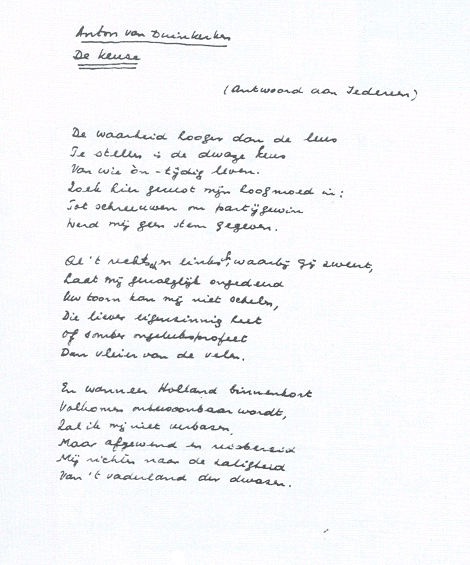 Anton van Duinkerken
De keuse
(Antwoord aan Iedereen)
De waarheid hooger dan de leus
Te stellen is de dwaze keus
Van wie òn-tijdig leven.
Zoek hier gerust mijn hoogmoed in:
Tot schreeuwen om partijgewin
Werd mij geen stem gegeven.
Al 't rechtsch en linksch, waarbij gij zweert,
Laat mij genoeglijk ongedeerd
Uw toorn kan mij niet schelen,
Die liever eigenzinnig heet
Of somber ongeluksprofeet
Dan vleier van de velen.
En wanneer Holland binnenkort
Volkomen onbewoonbaar wordt,
Zal ik mij niet verbazen,
Maar afgewend en reisbereid
Mij richten naar de zaligheid
Van 't vaderland der dwazen.